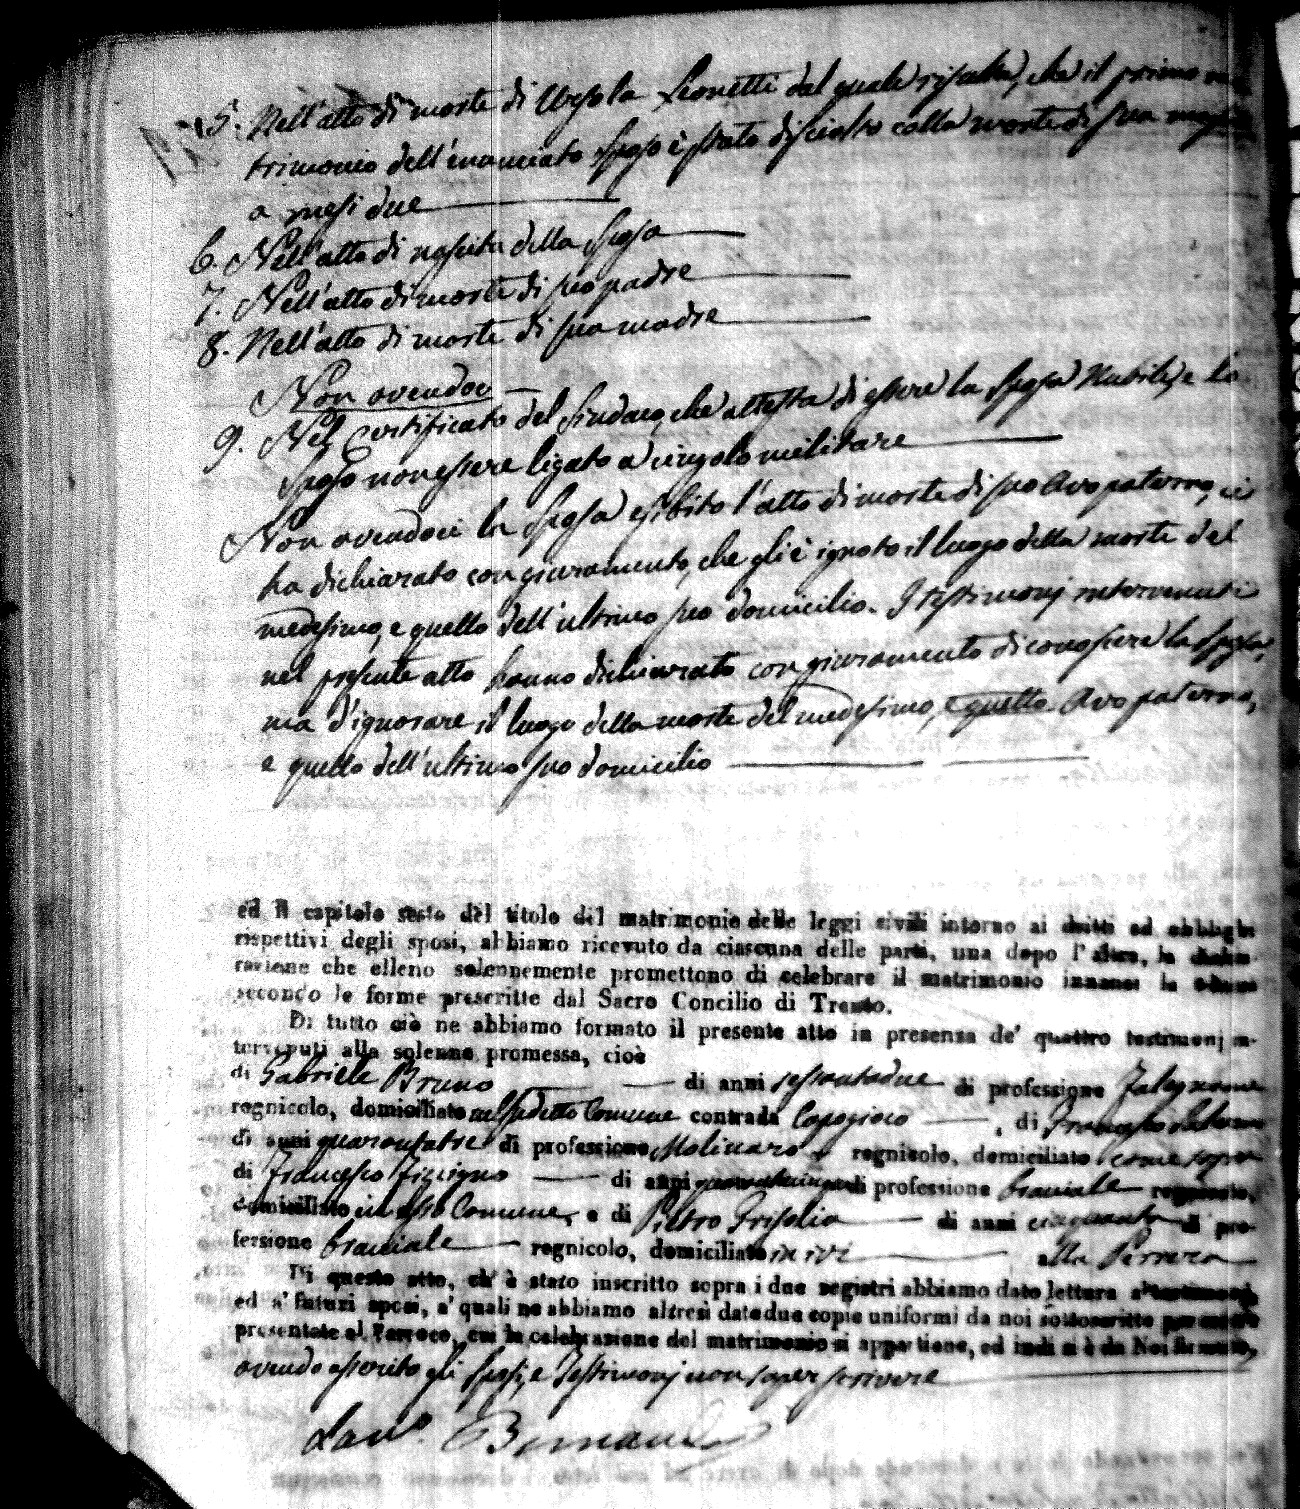 5. Nell'atto di morte di Ursola Leonetti dal quale risulta, che il primo ma
trimonio dell'enunciato sposo è stato disciolto colla morte di sua moglie
a mesi due
6. Nell'atto di nascita della sposa
7. Nell'atto di morte di suo padre
8. Nell'atto di morte di sua madre
Non avendoci
9. Nel Certificato del Sindaco, che attesta di essere la sposa Nubile, e lo
sposo non essere ligato a cingolo militare
Non avendoci la sposa esibito l'atto di morte di suo Avo paterno, ci
ha dichiarato con giuramento, che gli è ignoto il luogo della morte del
medesimo, e quello dell'ultimo suo domicilio. I testimonj intervenuti
nel presente atto hanno dichiarato con giuramento di conoscere la sposa,
ma d'ignorare il luogo della morte del medesimo, e quello Avo paterno,
e quello dell'ultimo suo domicilio
ed il capitolo sesto del titolo del matrimonio delle leggi civili intorno ai dritti ed obblighi
rispettivi degli sposi, abbiamo ricevuto da ciascuna delle parti, una dopo l'altra, la dichia-
razione che elleno solennemente promettono di celebrare il matrimonio innanzi la chiesa
secondo le forme prescritte dal Sacro Concilio di Trento.
Di tutto ciò ne abbiamo formato il presente atto in presenza de' quattro testimonj in-
tervenuti alla solenne promessa, cioè
di Gabriele Bruno di anni sessantadue di professione Falegname
regnicolo, domiciliato nel sudetto Comune contrada Capogioco, di Francesco
di anni quarantatre di professione Molinaro regnicolo, domiciliato come sopra
di Francesco di anni di professione bracciale regnicolo,
domiciliato in esso Comune, e di Pietro Grisolia di anni cinquanta di pro-
fessione bracciale regnicolo, domiciliato in ivi alla
Di questo atto, ch' è stato inscritto sopra i due registri abbiamo dato lettura a' testimonj
ed a' futuri sposi, a' quali ne abbiamo altresì date due copie uniformi da noi sottoscritte per essere
presentate al Parroco, cui la celebrazione del matrimonio si appartiene, ed indi si è da Noi firmato,
avendo asserito gli sposi, e Testimonj non saper scrivere